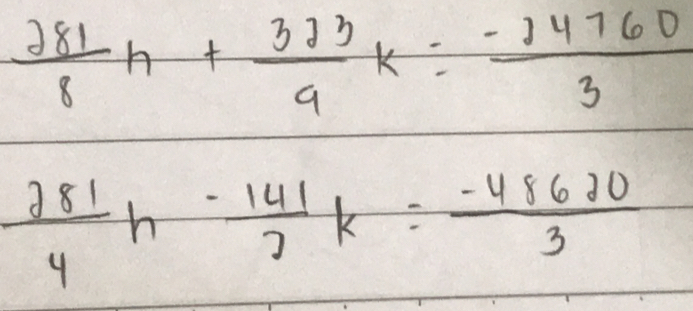 \frac{281}{8}h + \frac{323}{9}k = \frac{-24760}{3}
\frac{281}{4}h - \frac{141}{2}k = \frac{-48620}{3}